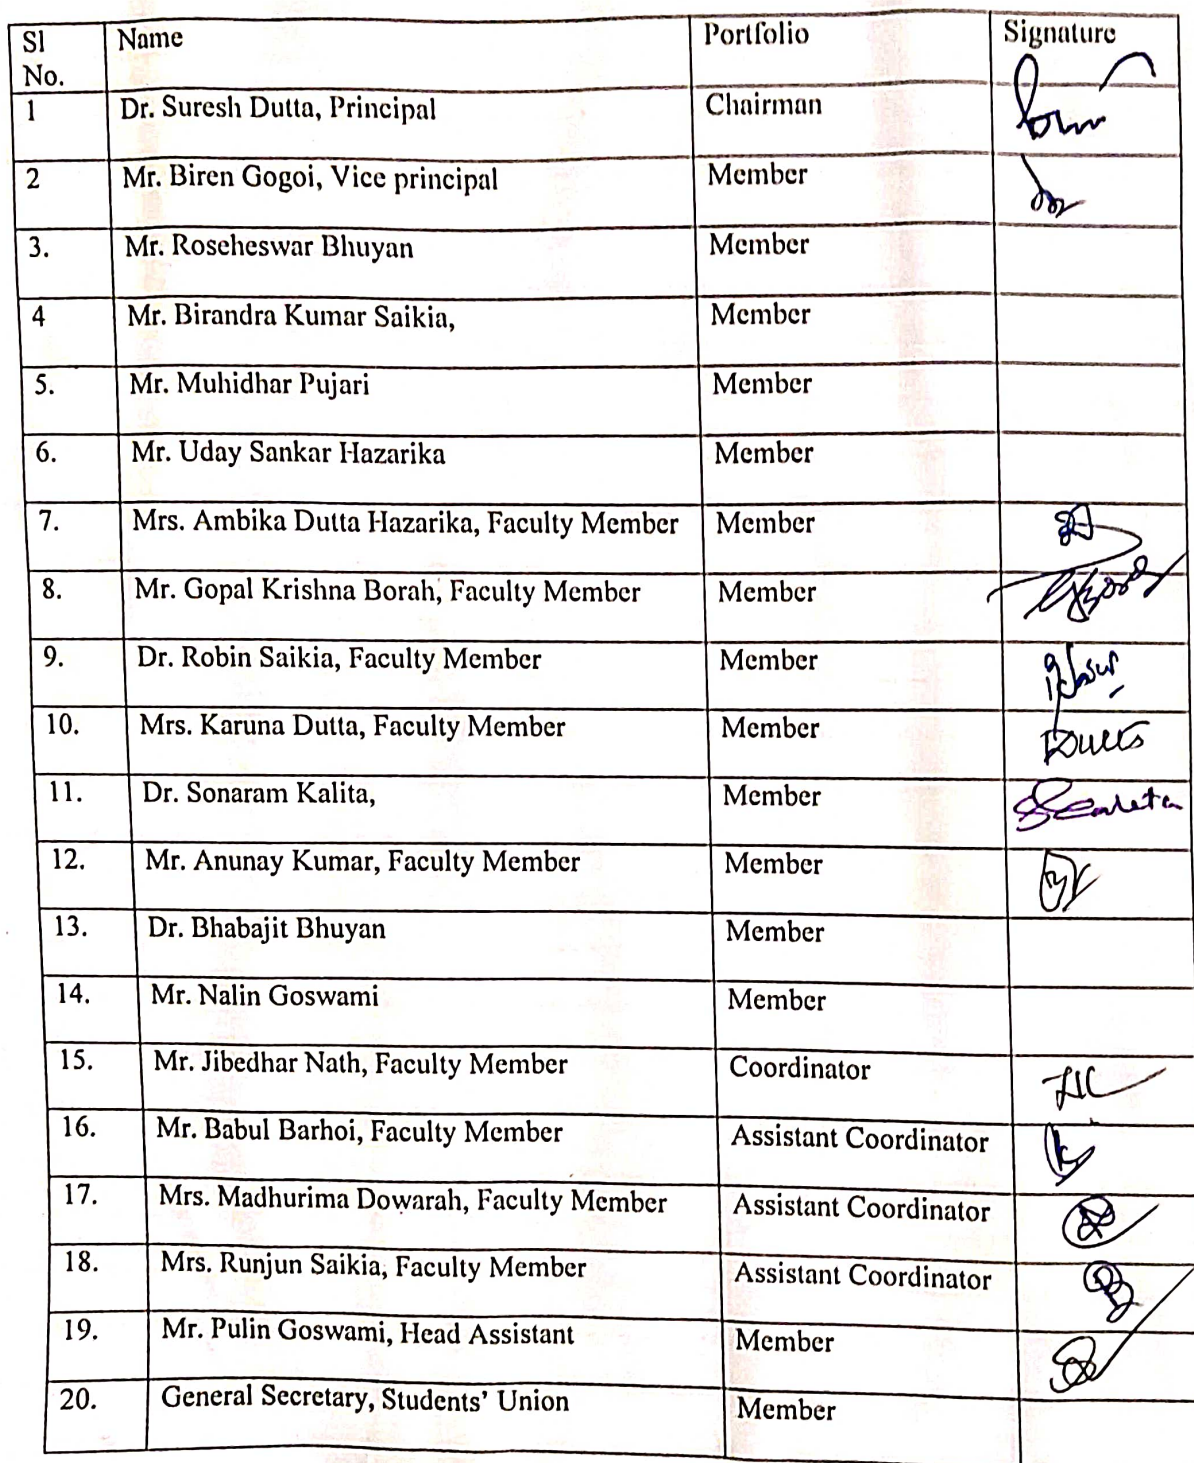 Sl No. Name Portfolio Signature
1 Dr. Suresh Dutta, Principal Chairman
2 Mr. Biren Gogoi, Vice principal Member
3. Mr. Roseheswar Bhuyan Member
4 Mr. Birandra Kumar Saikia, Member
5. Mr. Muhidhar Pujari Member
6. Mr. Uday Sankar Hazarika Member
7. Mrs. Ambika Dutta Hazarika, Faculty Member Member
8. Mr. Gopal Krishna Borah, Faculty Member Member
9. Dr. Robin Saikia, Faculty Member Member
10. Mrs. Karuna Dutta, Faculty Member Member
11. Dr. Sonaram Kalita, Member
12. Mr. Anunay Kumar, Faculty Member Member
13. Dr. Bhabajit Bhuyan Member
14. Mr. Nalin Goswami Member
15. Mr. Jibedhar Nath, Faculty Member Coordinator
16. Mr. Babul Barhoi, Faculty Member Assistant Coordinator
17. Mrs. Madhurima Dowarah, Faculty Member Assistant Coordinator
18. Mrs. Runjun Saikia, Faculty Member Assistant Coordinator
19. Mr. Pulin Goswami, Head Assistant Member
20. General Secretary, Students' Union Member